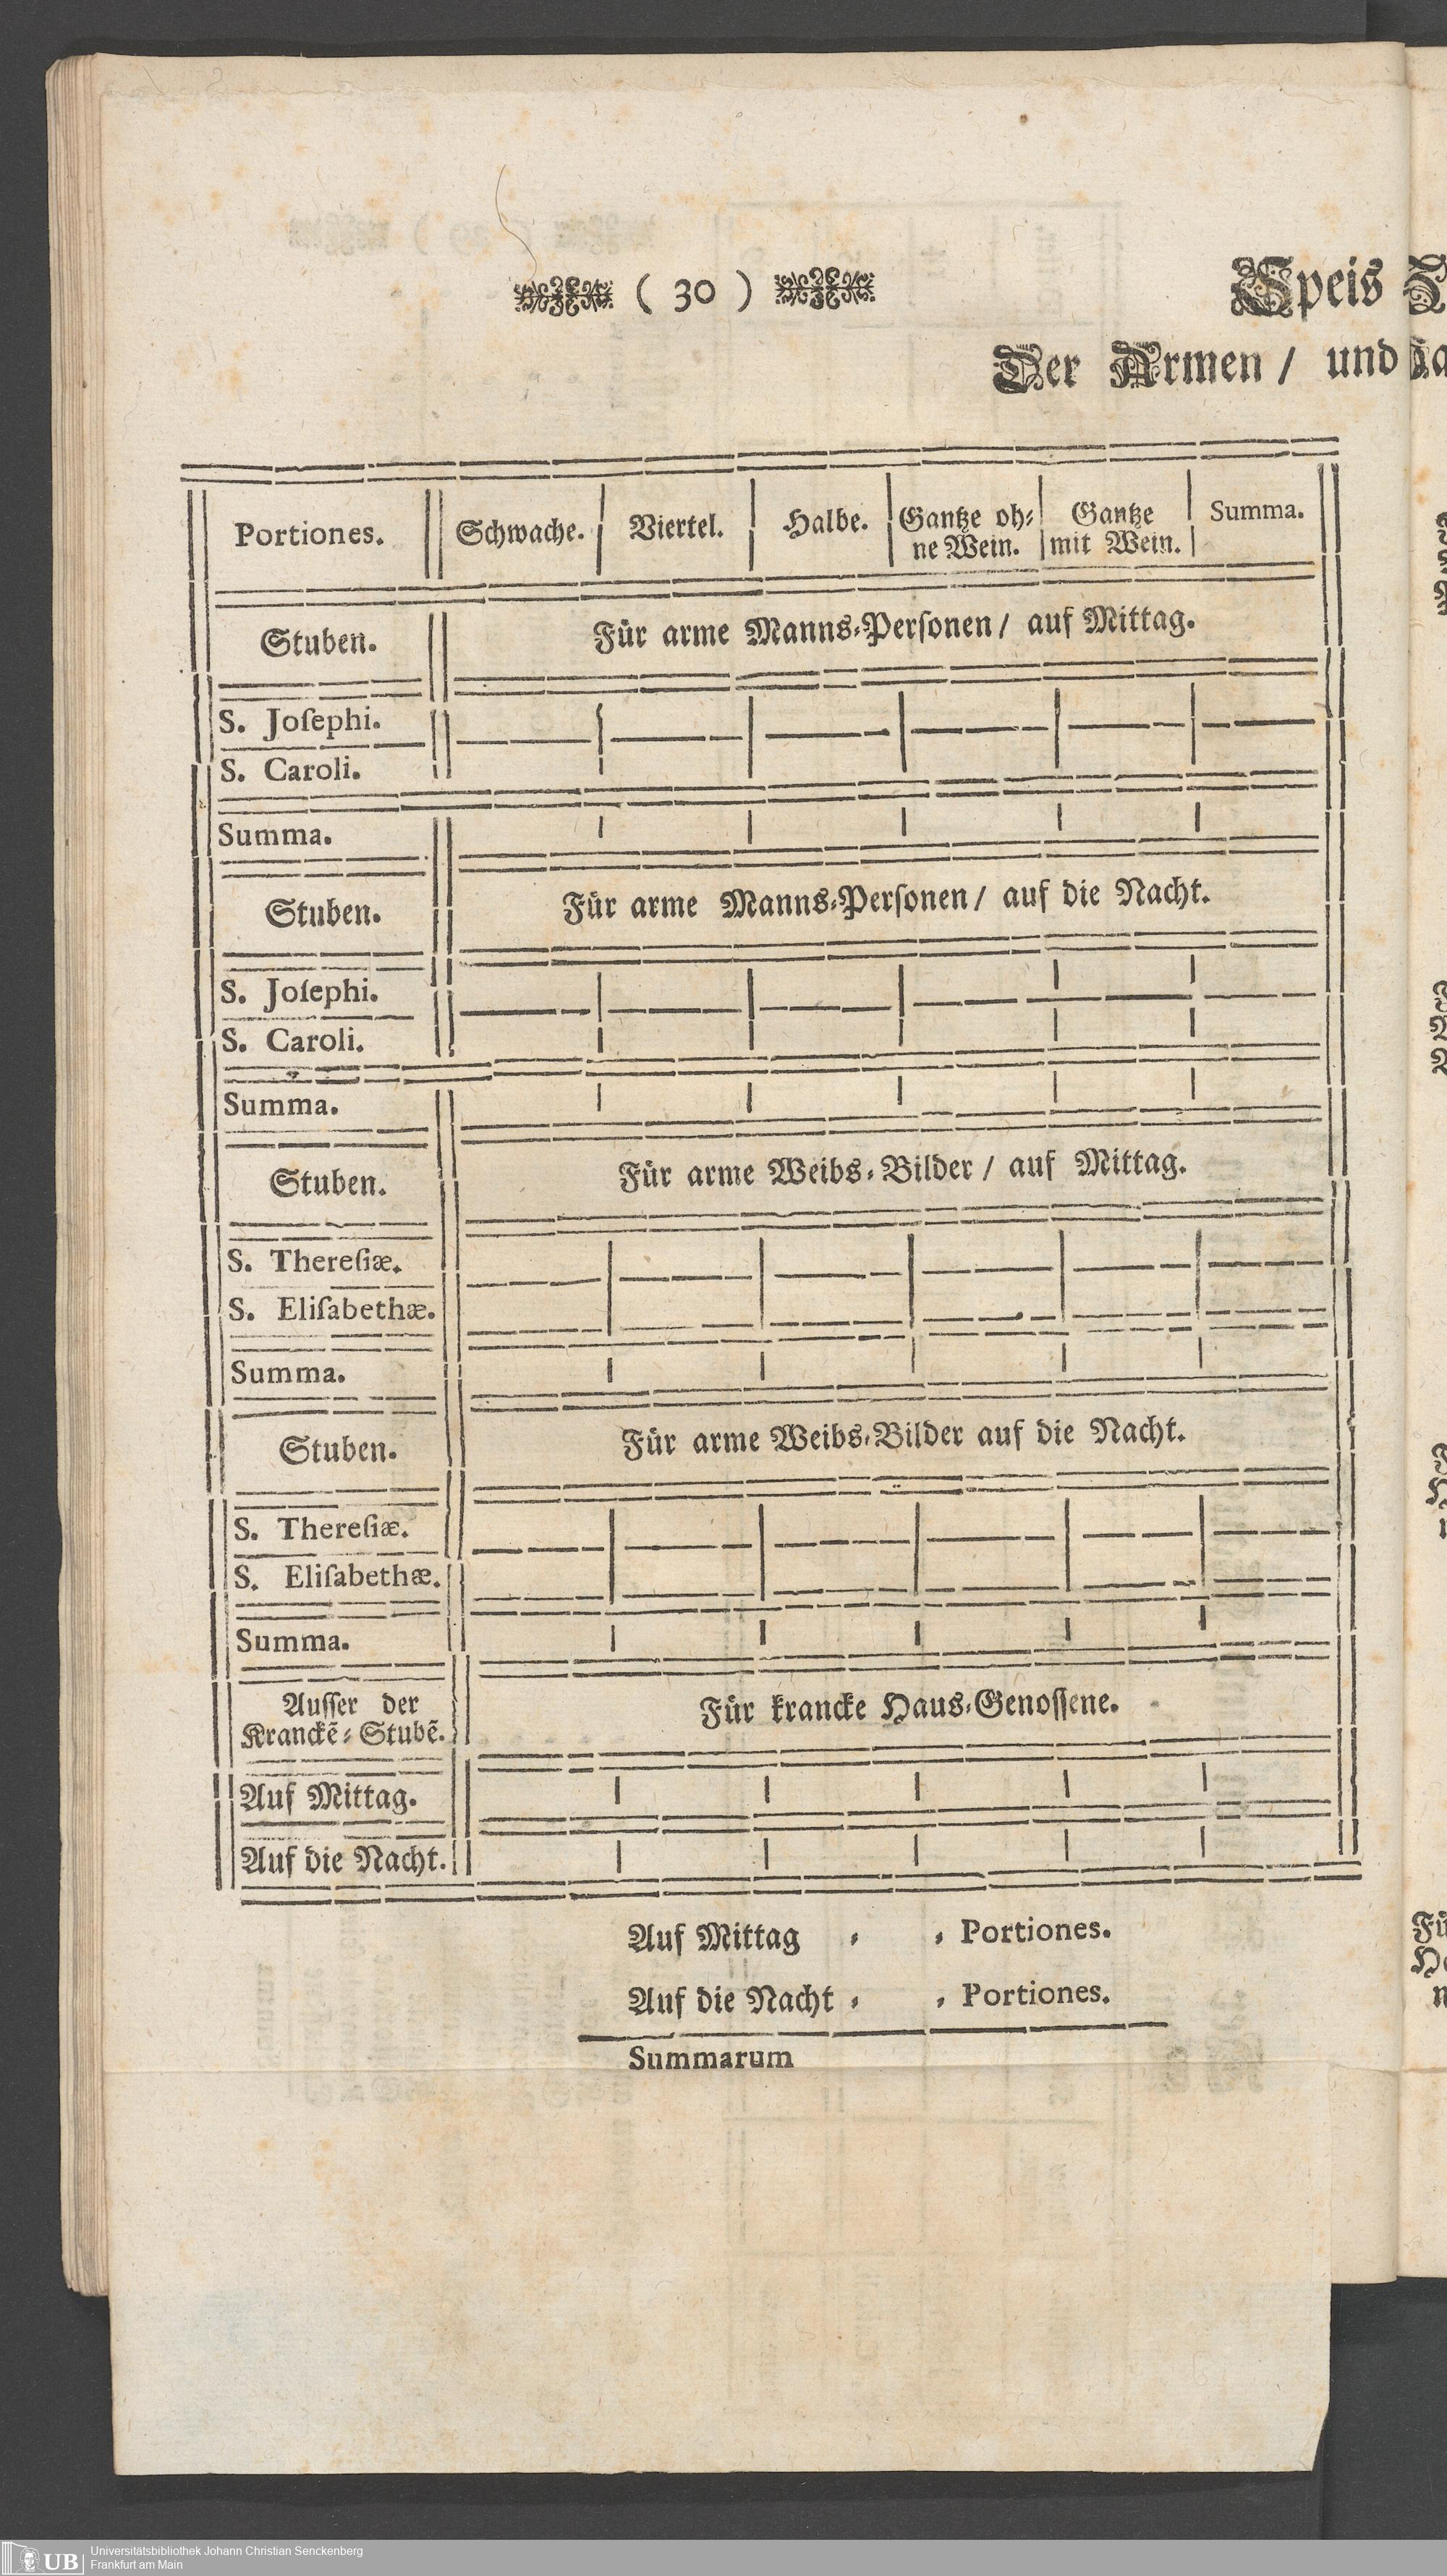 ( 30 )
Speis
Der Armen / und
Portiones. Schwache. Viertel. Halbe. Gantze oh⸗ Gantze Summa.
ne Wein. mit Wein.
Stuben. Für arme Manns⸗Perſonen / auf Mittag.
S. Joſephi.
S. Caroli.
Summa.
Stuben. Für arme Manns⸗Perſonen / auf die Nacht.
S. Joſephi.
S. Caroli.
Summa.
Stuben. Für arme Weibs⸗Bilder / auf Mittag.
S. Thereſiæ.
S. Eliſabethæ.
Summa.
Stuben. Für arme Weibs⸗Bilder auf die Nacht.
S. Thereſiæ.
S. Eliſabethæ.
Summa.
Auſſer der
Kranckẽ⸗Stubẽ. Für krancke Haus⸗Genoſſene.
Auf Mittag.
Auf die Nacht.
Auf Mittag ⸗ ⸗ Portiones.
Auf die Nacht ⸗ ⸗ Portiones.
Summarum
UB Universitätsbibliothek Johann Christian Senckenberg
Frankfurt am Main